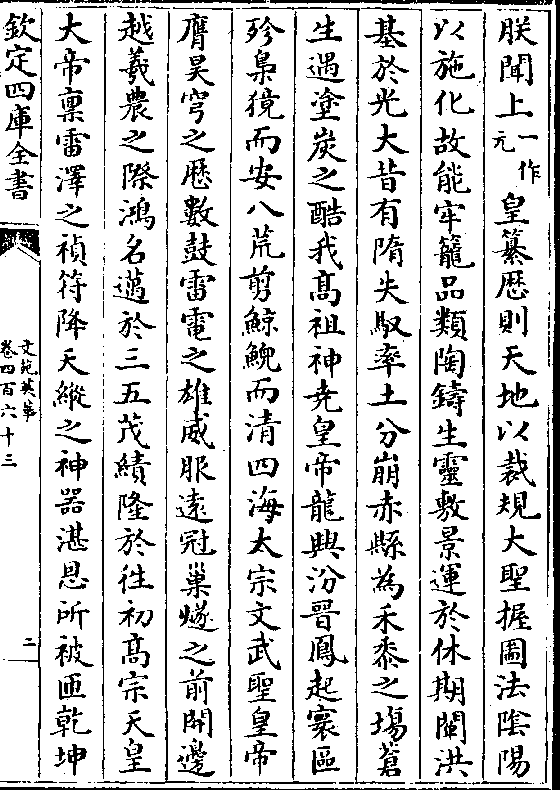 朕聞上一作元皇纂歴則天地以裁規大聖握圖法隂陽
以施化故能牢籠品類陶鑄生靈敷景運於休期闡洪
基於光大昔有隋失馭率土分崩赤縣為禾黍之塲蒼
生遇塗炭之酷我髙祖神堯皇帝龍興汾晉鳳起寰區
殄梟獍而安八荒剪鯨鯢而清四海太宗文武聖皇帝
膺昊穹之歴數鼓雷電之雄威服逺冠巢燧之前開邊
越羲農之際鴻名邁於三五茂績隆於徃初髙宗天皇
大帝禀雷澤之禎符降天縱之神器湛恩所被匝乾坤
欽定四庫全書
文苑英華
卷四百六十三
二